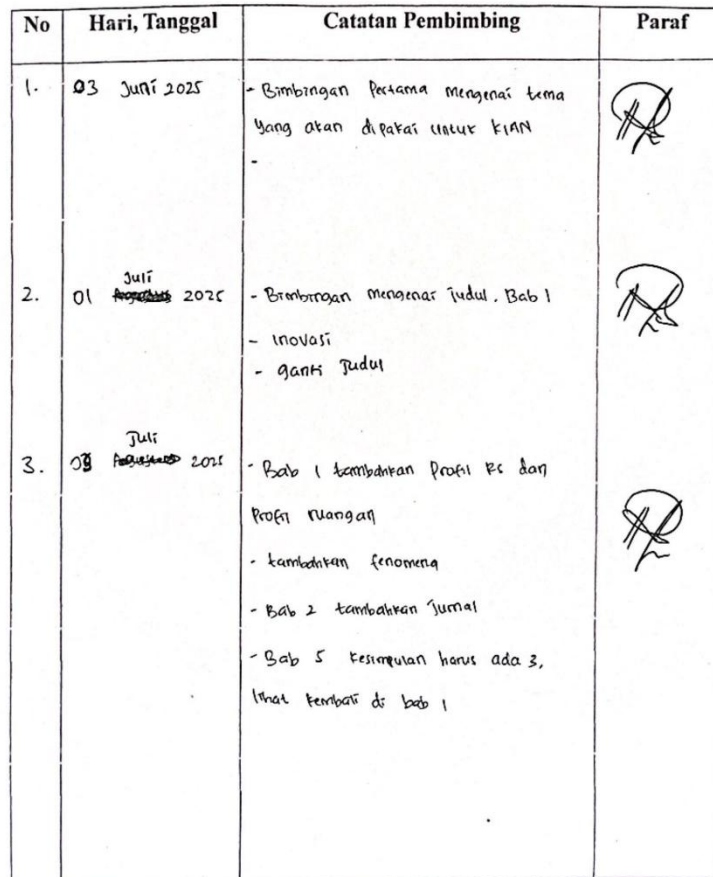 No Hari, Tanggal Catatan Pembimbing Paraf
1. 03 Juni 2025 - Bimbingan Pertama mengenai tema
yang akan dipakai untuk KIAN
-
Juli
2. 01 2025 - Bimbingan mengenai judul. Bab 1
- Inovasi
- ganti Judul
Juli
3. 2025 - Bab 1 tambahkan Profil RS dan
Profil ruangan
- tambahkan fenomena
- Bab 2 tambahkan Jurnal
- Bab 5 kesimpulan harus ada 3,
lihat kembali di bab 1